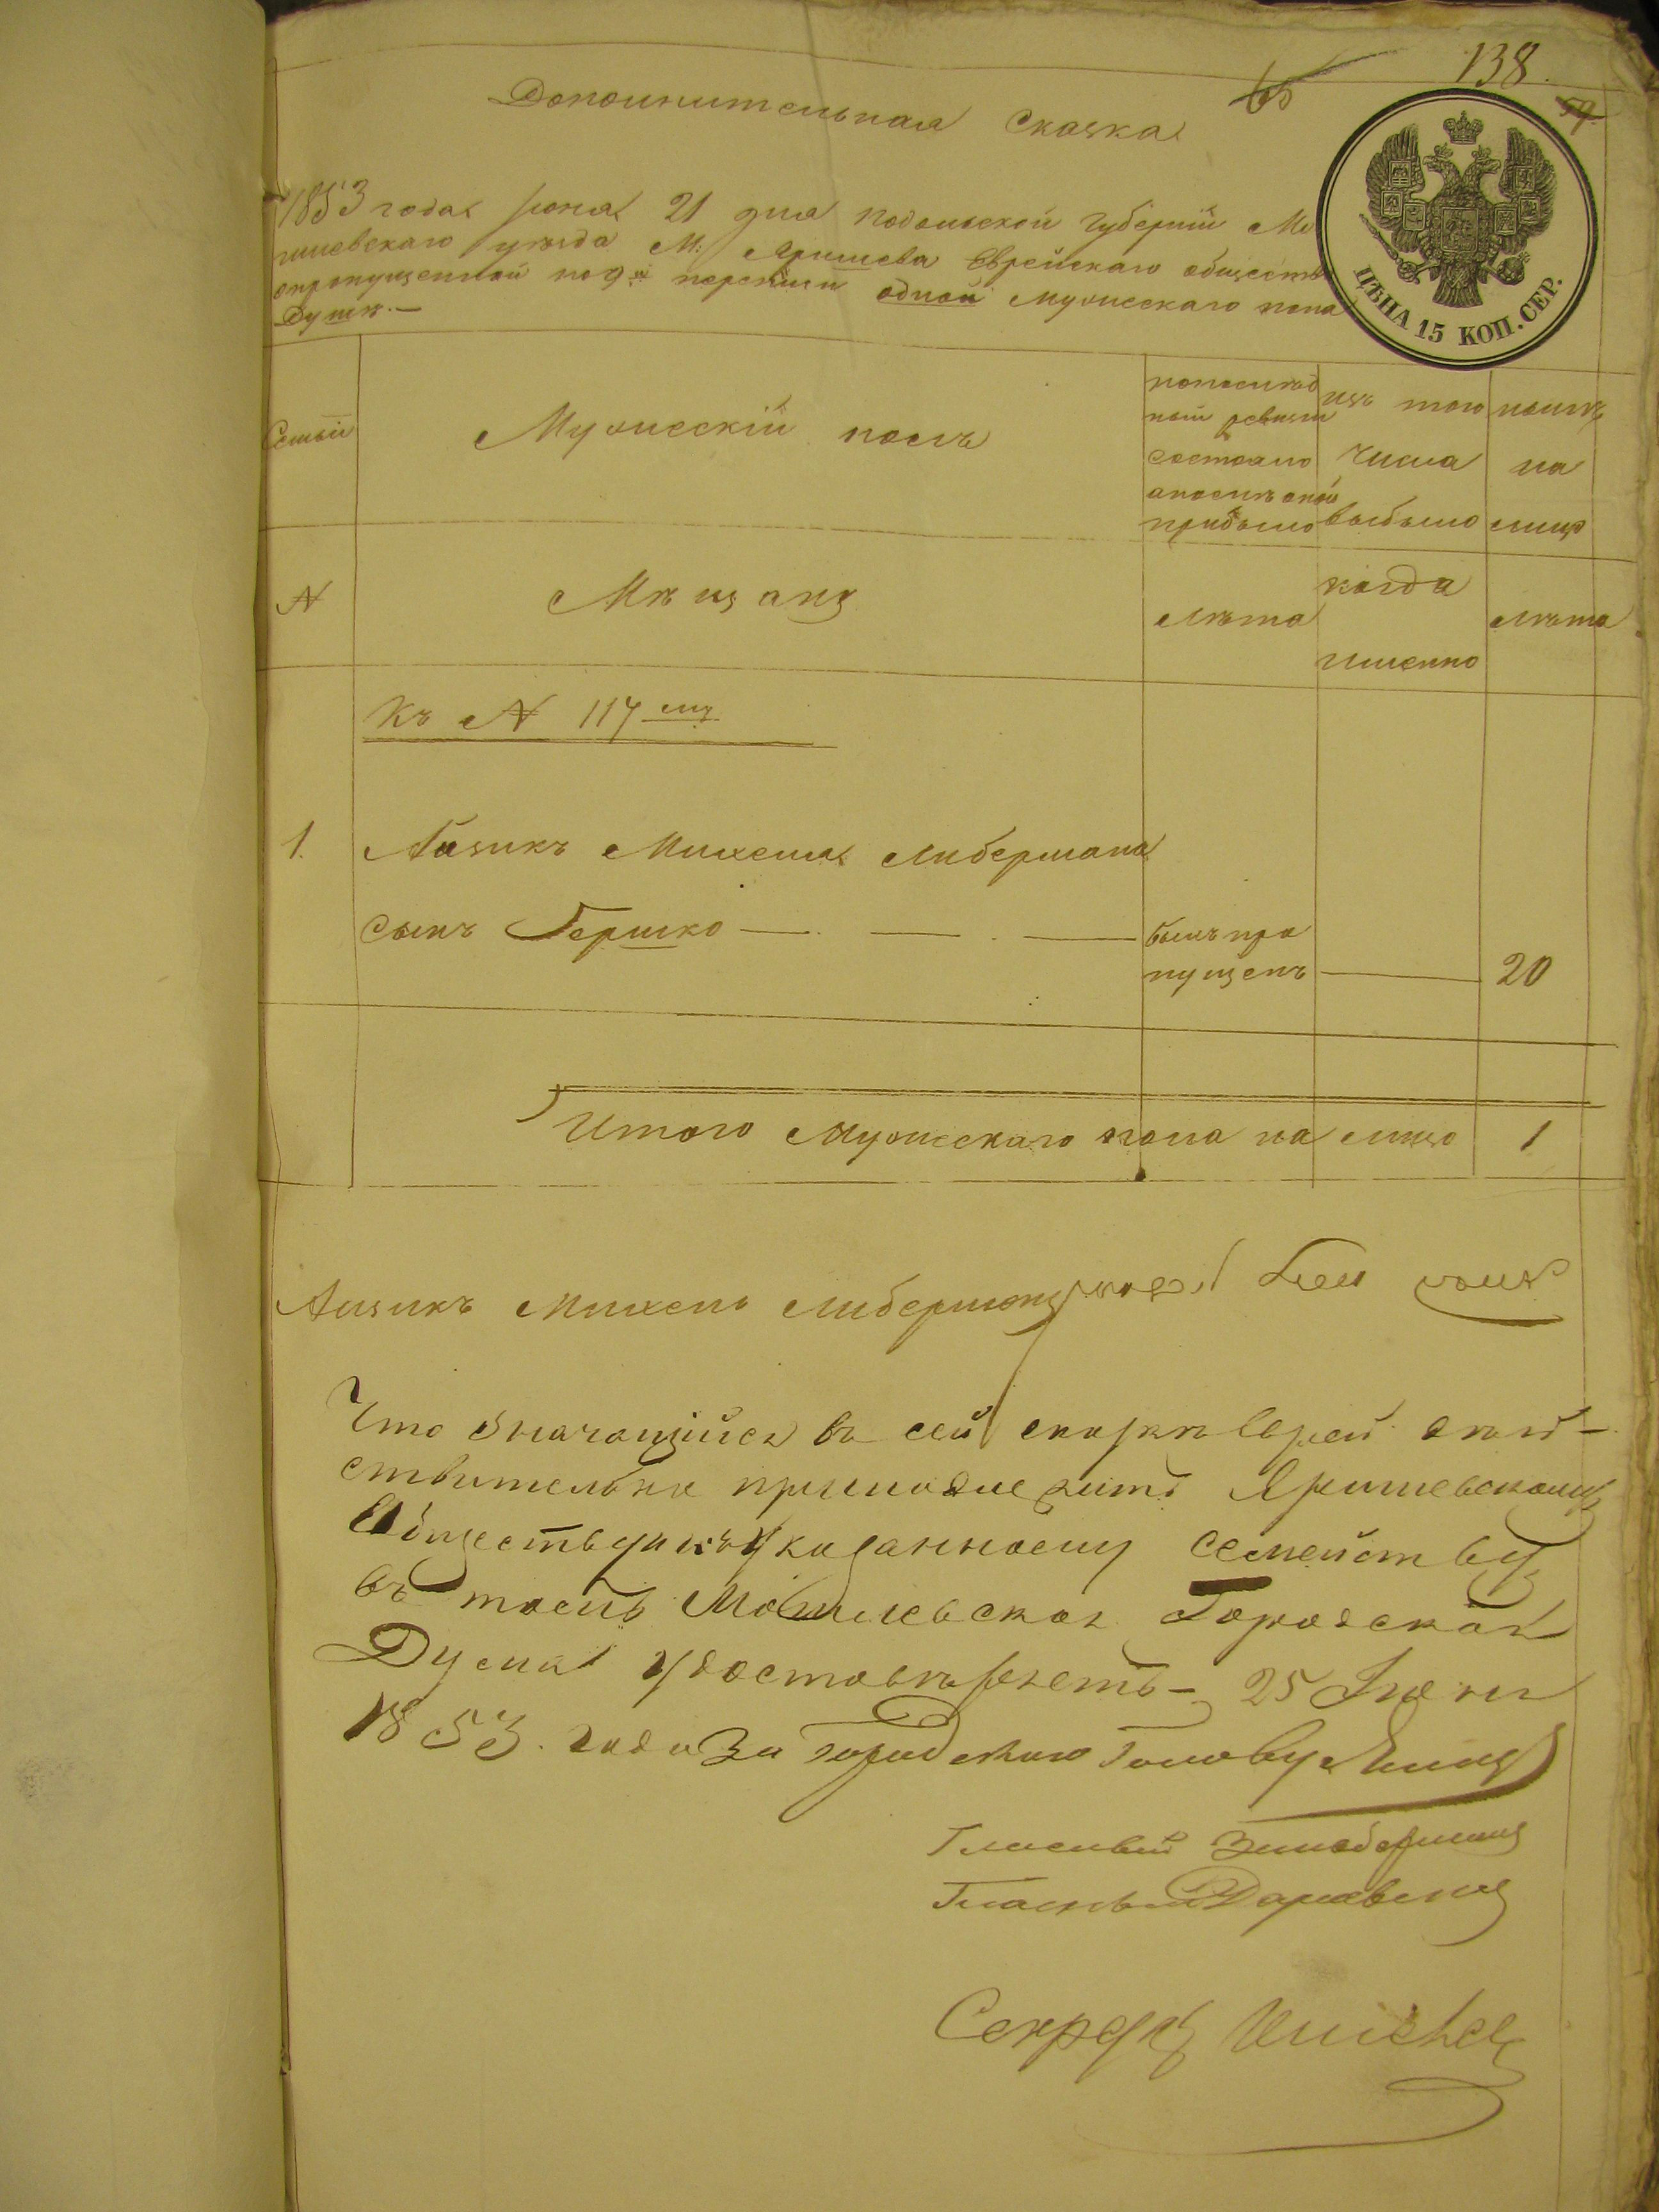 138.
Дополнительная Сказка
1853 года Іюня 21 дня Подольской Губерніи Мо
гилевскаго уѣзда М: Яришева Еврейскаго обществ
о пропущенной по 9й переписи одной мужескаго пола
Душѣ.—
ЦѢНА 15 КОП. СЕР.
Семьи
Мужескій полъ
по послѣд
ней ревизіи
состояло
а послѣ оной
прибыло
изъ того
числа
выбыло
нынѣ
на
лицо
№
Мѣщанъ
лѣта
когда
именно
лѣта
Къ № 117
1. Айзика Михеля Либермана
сынъ Гершко — — —
былъ про
пущенъ — 20
Итого мужескаго пола на лицо 1
Айзикъ Михель Либерманъ
Что значащійся въ сей сказкѣ еврей дѣй-
ствительно принадлежитъ Яришевскому
Обществу и къ указанному Семейству,
въ томъ Могилевская Городская
Дума удостовѣряетъ – 25 Іюня
1853. года За городскаго Голову
Гласный
Гласный
Секрет